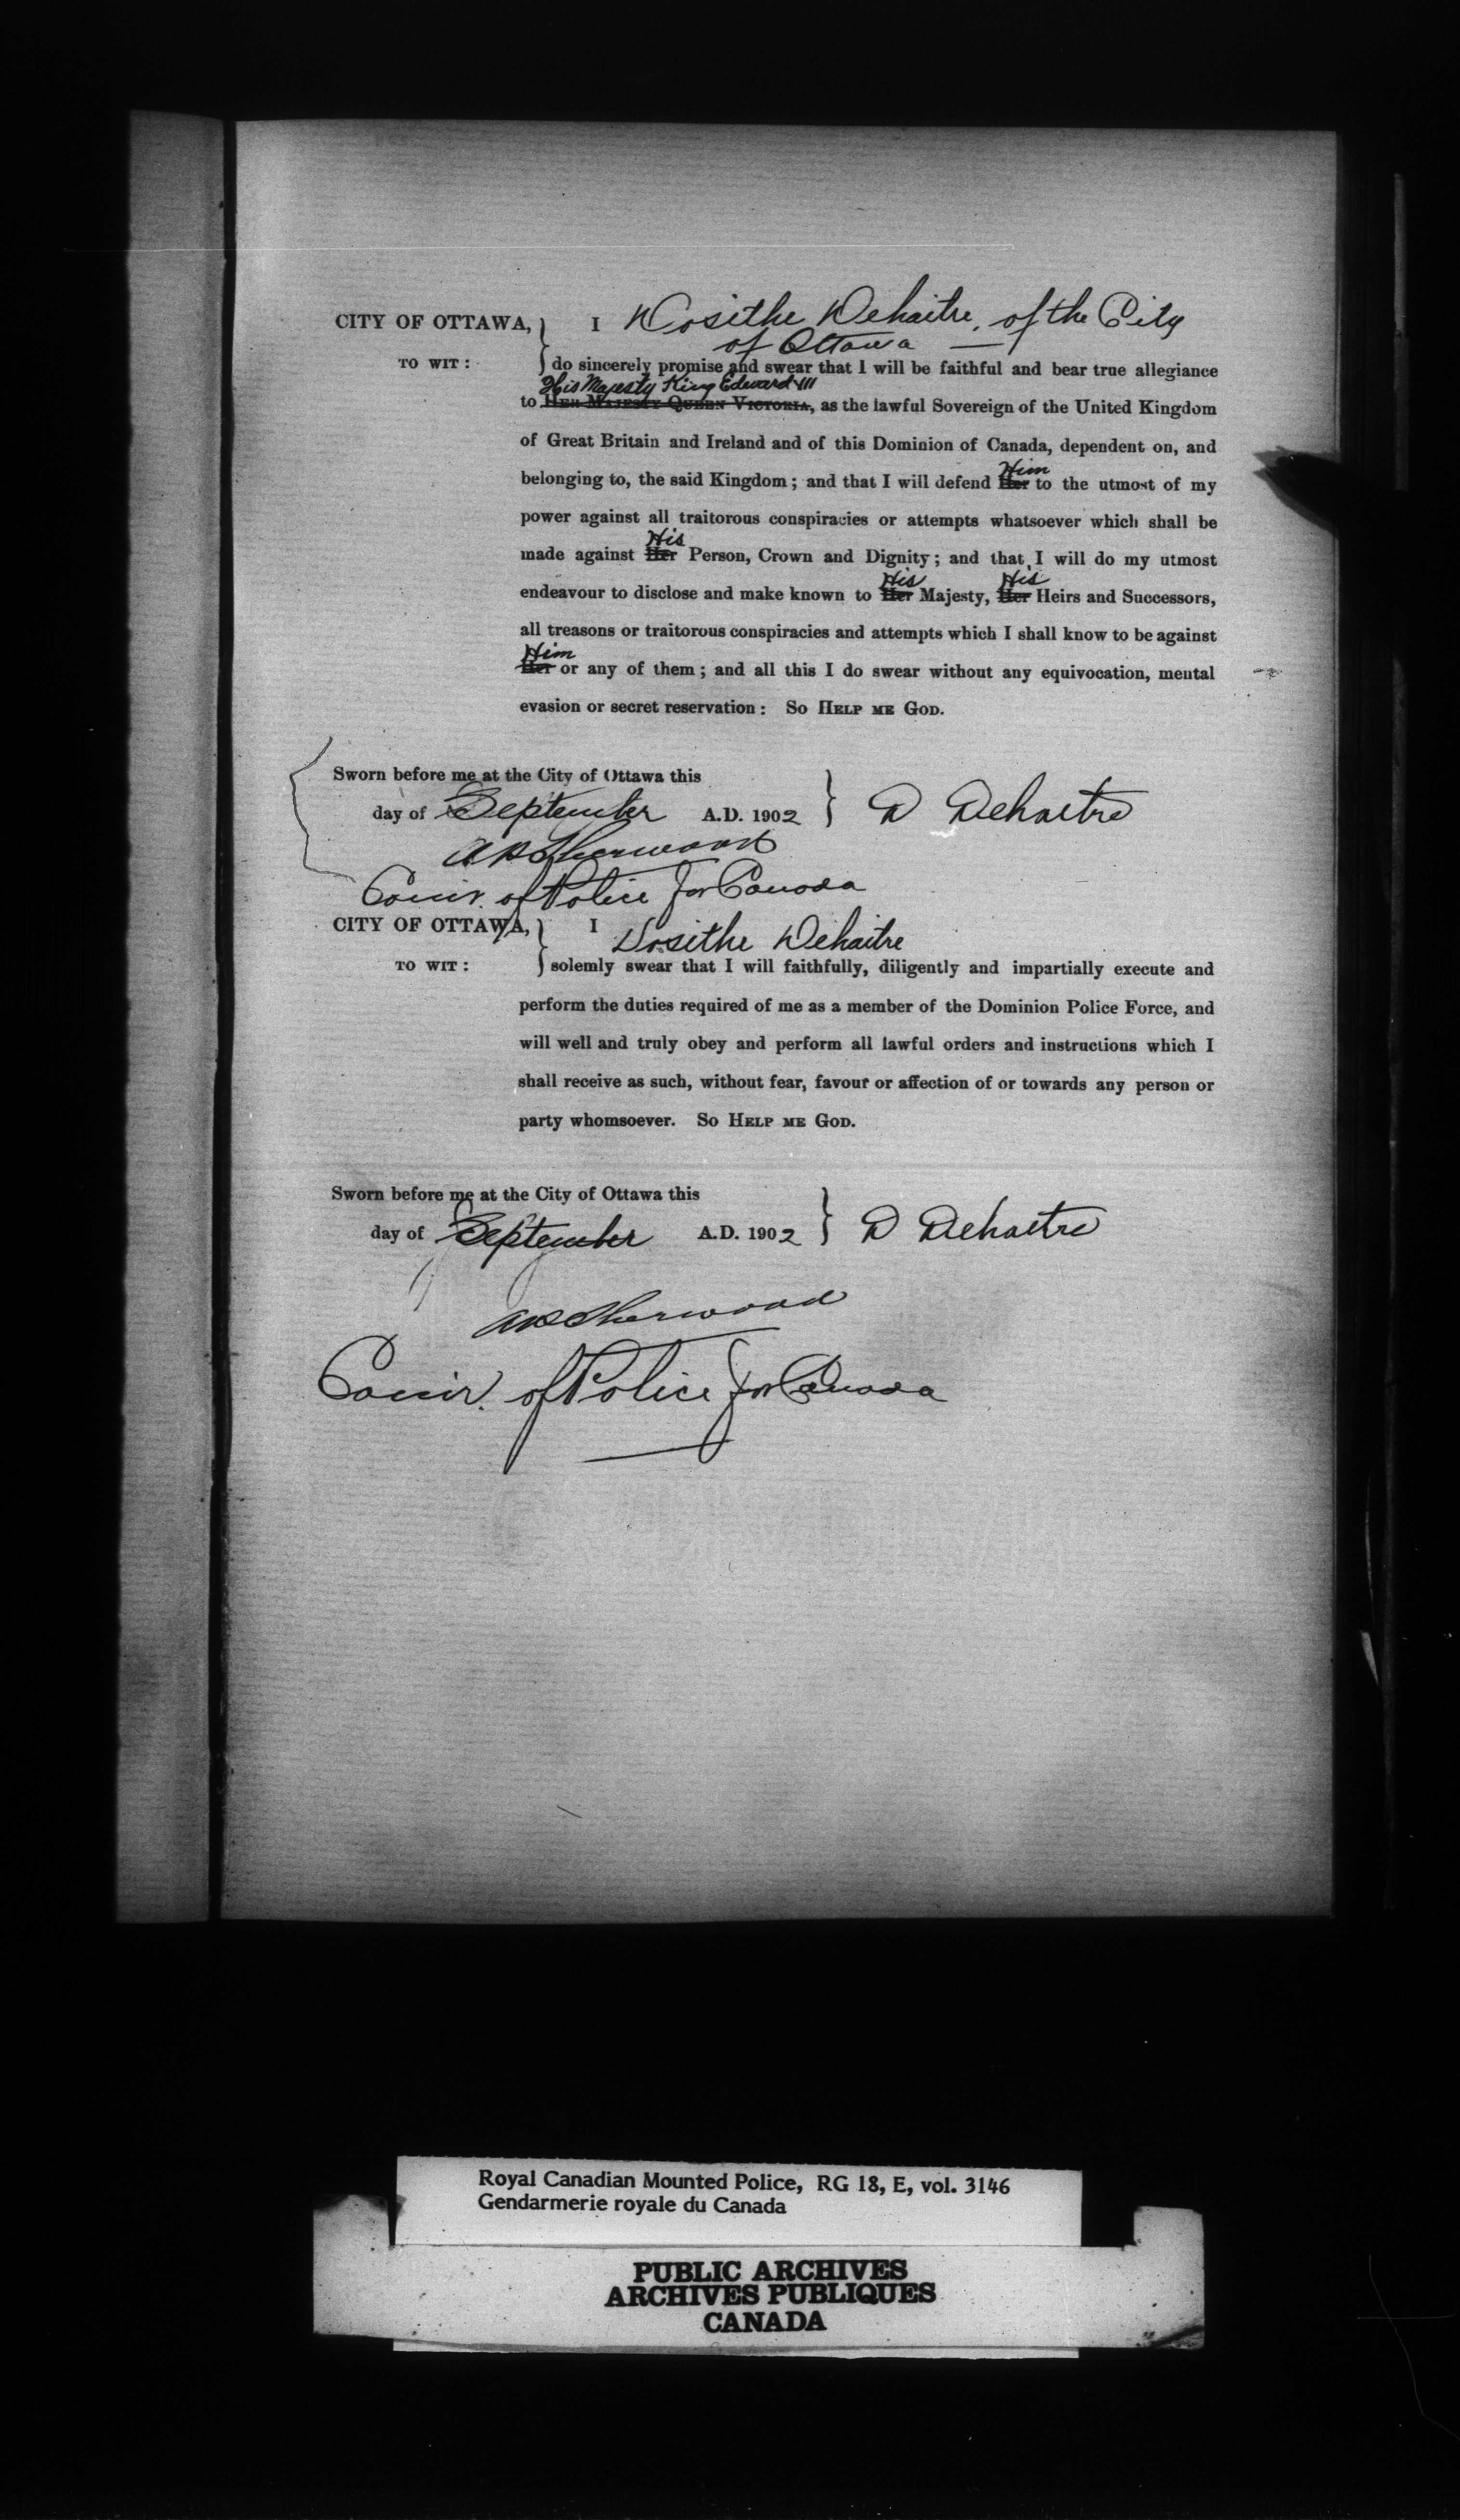 CITY OF OTTAWA, I Dosithe Dehaitre, of the City
of Ottawa —
TO WIT : do sincerely promise and swear that I will be faithful and bear true allegiance
His Majesty King Edward VII
to HER MAJESTY QUEEN VICTORIA, as the lawful Sovereign of the United Kingdom
of Great Britain and Ireland and of this Dominion of Canada, dependent on, and
Him
belonging to, the said Kingdom ; and that I will defend Her to the utmost of my
power against all traitorous conspiracies or attempts whatsoever which shall be
His
made against Her Person, Crown and Dignity ; and that I will do my utmost
His His
endeavour to disclose and make known to Her Majesty, Her Heirs and Successors,
all treasons or traitorous conspiracies and attempts which I shall know to be against
Him
Her or any of them ; and all this I do swear without any equivocation, mental
evasion or secret reservation : SO HELP ME GOD.
Sworn before me at the City of Ottawa this
day of September A.D. 1902 D Dehaitre
AP Sherwood
Comr. of Police for Canada
CITY OF OTTAWA, I Dosithe Dehaitre
TO WIT : solemly swear that I will faithfully, diligently and impartially execute and
perform the duties required of me as a member of the Dominion Police Force, and
will well and truly obey and perform all lawful orders and instructions which I
shall receive as such, without fear, favour or affection of or towards any person or
party whomsoever. SO HELP ME GOD.
Sworn before me at the City of Ottawa this
day of September A.D. 1902 D Dehaitre
AP Sherwood
Comr. of Police for Canada
Royal Canadian Mounted Police, RG 18, E, vol. 3146
Gendarmerie royale du Canada
PUBLIC ARCHIVES
ARCHIVES PUBLIQUES
CANADA